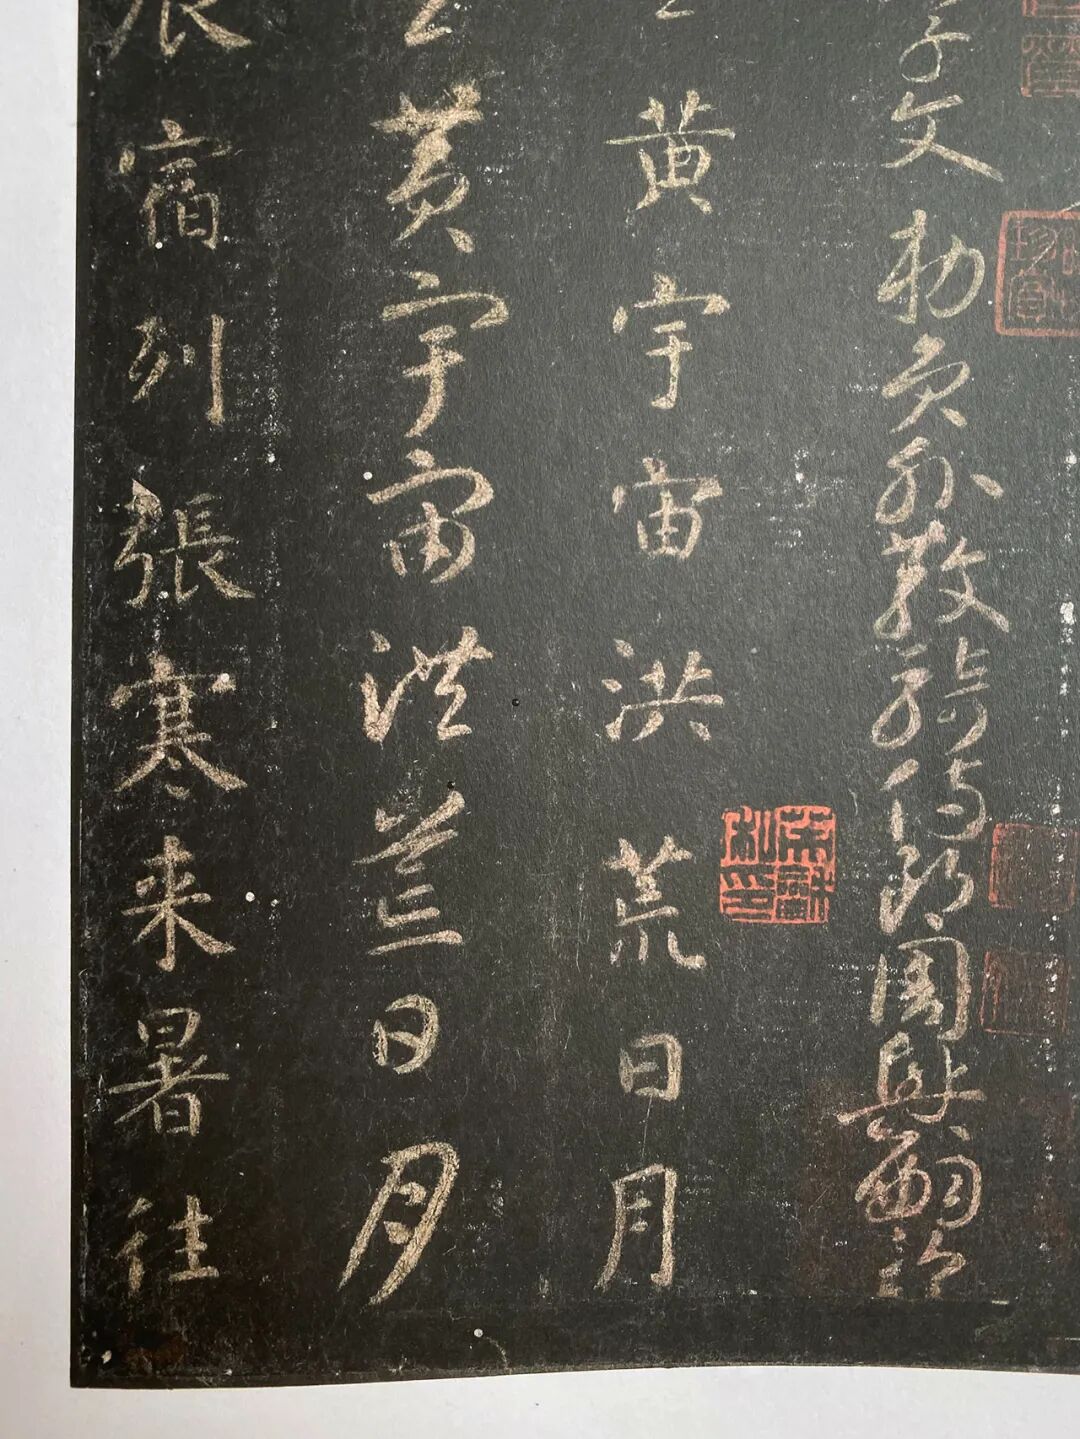 字文敕員外散騎侍郎周興嗣次
黄宇宙洪荒日月
黄宇宙洪荒日月
辰宿列張寒来暑往